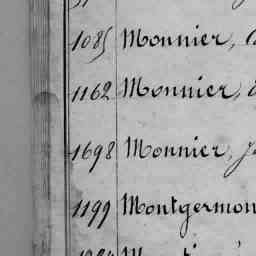 1085 Monnier,
1162 Monnier,
1698 Monnier,
1199 Montgermon